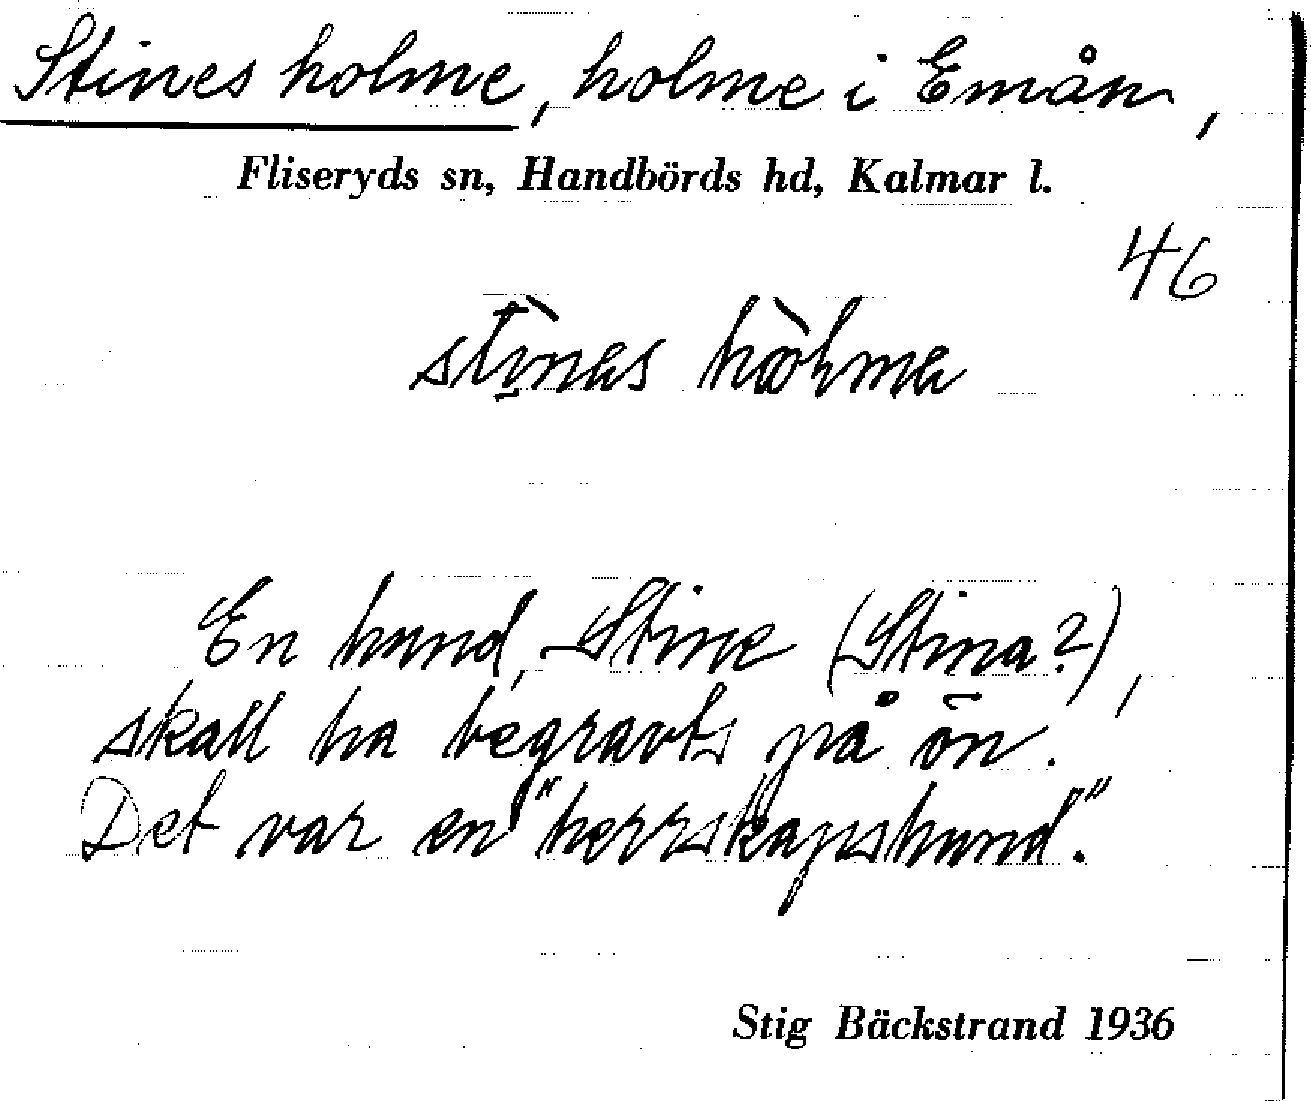 Stines holme, holme i Emån,
Fliseryds sn, Handbörds hd, Kalmar l.
46
En hund, Stine (Stina?),
skall ha begravts på ön.
Det var en "herrskapshund."
Stig Bäckstrand 1936